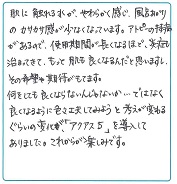 肌に触れる水が、やわらかく感じ、風呂あがり
のカサカサ感が少なくなっています。アトピーの持病
があるので、使用期間が長くなるほど、炎症も
治まってきて、もっと肌も良くなるんだと思いますし、
その希望も期待がもてます。
何をしても良くならないんじゃないか…ではなく
良くなるように色々工夫してみようと考えが変わる
ぐらいの変化が、「アクアス5」を導入して
ありました。これからが楽しみです。